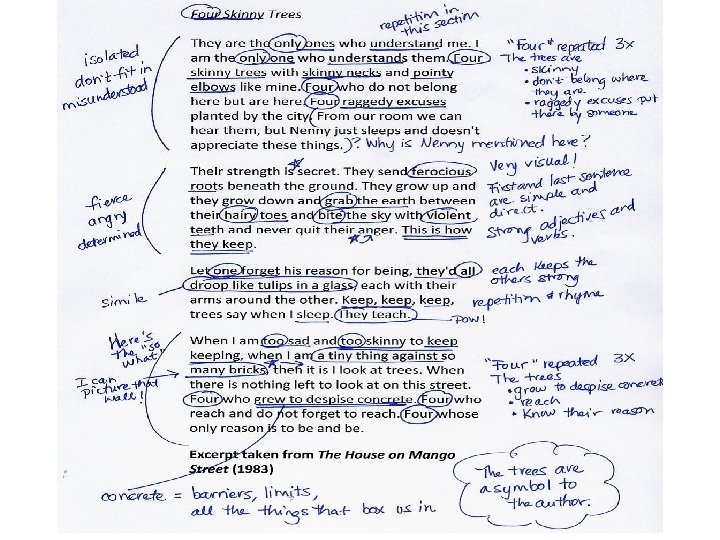 Four Skinny Trees
repetition in
this section
They are the only ones who understand me. I
am the only one who understands them. Four
skinny trees with skinny necks and pointy
elbows like mine. Four who do not belong
here but are here. Four raggedy excuses
planted by the city. From our room we can
hear them, but Nenny just sleeps and doesn't
appreciate these things.
isolated
don't fit in
misunderstood
"Four" repeated 3x
The trees are
• skinny
• don't belong where
they are
• raggedy excuses put
there by someone
? Why is Nenny mentioned here?
Their strength is secret. They send ferocious
roots beneath the ground. They grow up and
they grow down and grab the earth between
their hairy toes and bite the sky with violent
teeth and never quit their anger. This is how
they keep.
fierce
angry
determined
Very visual!
First and last sentence
are simple and
direct.
Strong adjectives and
verbs.
Let one forget his reason for being, they'd all
droop like tulips in a glass, each with their
arms around the other. Keep, keep, keep,
trees say when I sleep. They teach.
simile
each keeps the
others strong
repetition & rhyme
POW!
When I am too sad and too skinny to keep
keeping, when I am a tiny thing against so
many bricks, then it is I look at trees. When
there is nothing left to look at on this street.
Four who grew to despise concrete. Four who
reach and do not forget to reach. Four whose
only reason is to be and be.
Here's
the "so
what"
I can
picture that
wall!
"Four" repeated 3X
The trees
• grew to despise concrete
• reach
• know their reason
Excerpt taken from The House on Mango
Street (1983)
concrete = barriers, limits,
all the things that box us in
The trees are
a symbol to
the author.